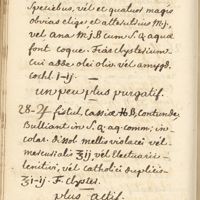 speciebus, vel et quatuor magis
obvias elige, et attestatibus M.j.
vel ana M.j.ß cum s.q. aquæ
font coque. Fiat clysterium
cui adde olei oliv. vel amygd.
cochl. i-ij.
un peu plus purgatif.
28- ♃ fistul. cassiæ ℔ß, contunde,
Bulliant in s.q. aq. comm; in
colat. dissol mellis violacei vel
mercurialis ℥ij vel Electuarii
lenitivi, vel catholici duplicis
℥i-ij. F. clystes.
plus actif.